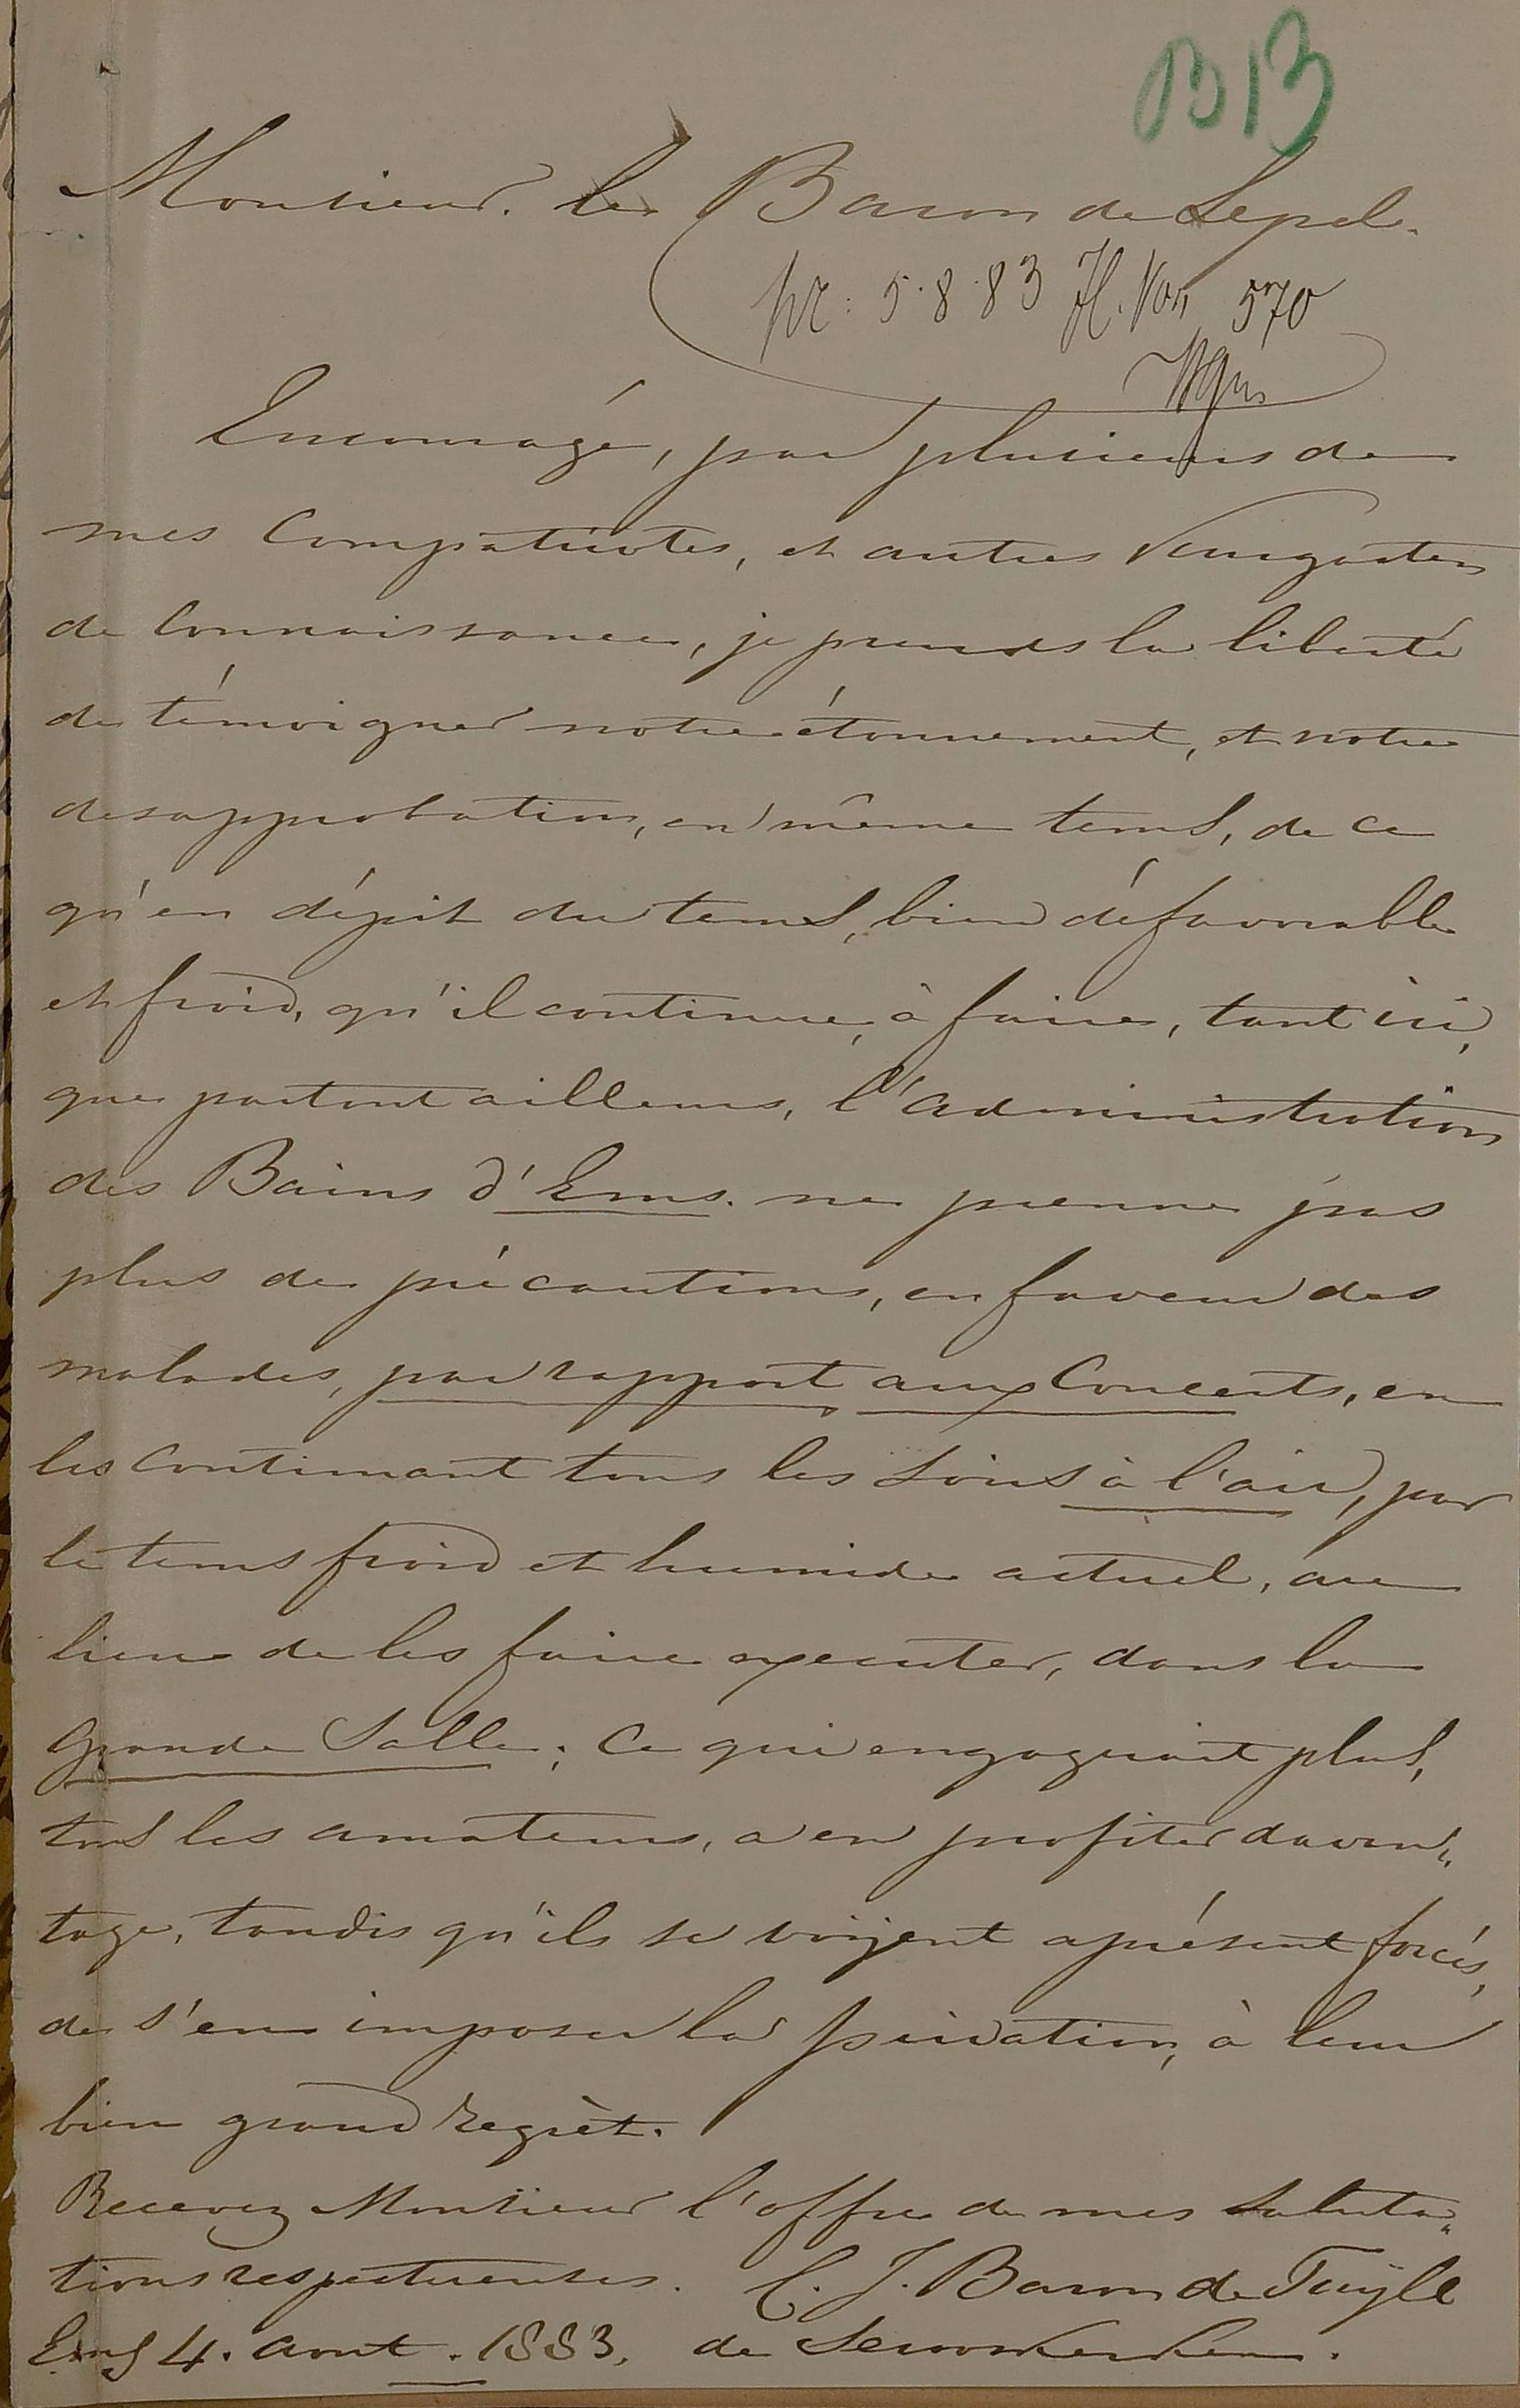 B13
Monsieur le Baron de Lepel.
pr: 5.8.83 570
Encouragé, par plusieurs de
mes Compatriotes, et autres Kurgasten
de Connaissance, je prends la liberté
de témoigner notre étonnement, et notre
desapprobation, en même tems, de ce
qu'en dépit du tems, bien défavorable
et froid, qu'il continue, à faire, tant ici,
que partout ailleurs, l'administration
des Bains d'Ems. ne prenne pas
plus de précautions, en faveur des
malades, par rapport aux Concerts, en
les continuant tous les soirs à l'air, par
le tems froid et humide actuel, au
lieu de les faire executer, dans la
grande Salle; Ce qui engageroit plus,
tous les amateurs, a en profiter davan„
tage, tandis qu'ils se voijent aprésent forcés,
de s'en imposer la privation, à leur
bien grand regrèt.
Recevez Monsieur l'offre de mes saluta„
tions respectueuses. C. J. Baron de Tuÿll
Ems 4. Aout. 1883. de Serooskerken.